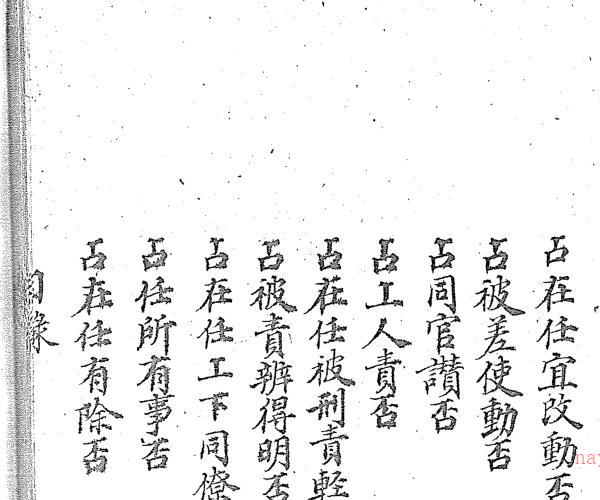 占在任宜改動否
占被差使動否
占同官讃否
占工人責否
占在任被刑責軽
占被責辨得明否
占在任工下同僚
占任所有事否
占在任有除否
目錄